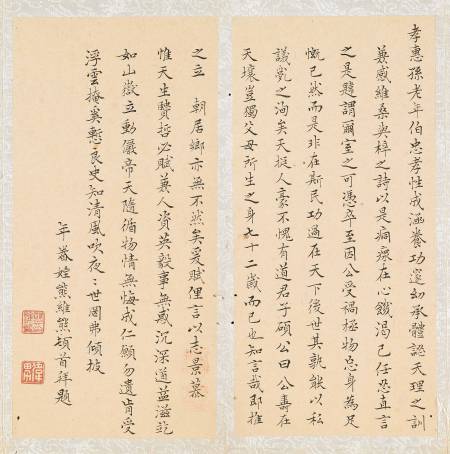 孝惠孫老年伯忠孝性成涵養功邃幼承體認天理之訓
兼感維桑與梓之詩以是痌瘝在心饑渴己任忿直言
之是趨謂爾室之可憑卒至因公受禍極物忘身為足
慨已然而是非在斯民功過在天下後世其孰能以私
議亂之洵矣天挺人豪不愧有道君子碩公曰公壽在
天壤豈獨父母所生之身七十二歲而已也知言哉即推
之立 朝居鄉亦無不然矣爰賦俚言以志景慕
惟天生賢哲必賦兼人資英毅事無惑沉深道益滋屹
如山嶽立動儼帝天隨循物情無悔成仁願勿遺肯受
浮雲掩奚慙良史知清風吹夜〻世罔弗傾披
年眷姪熊維熊頓首拜題